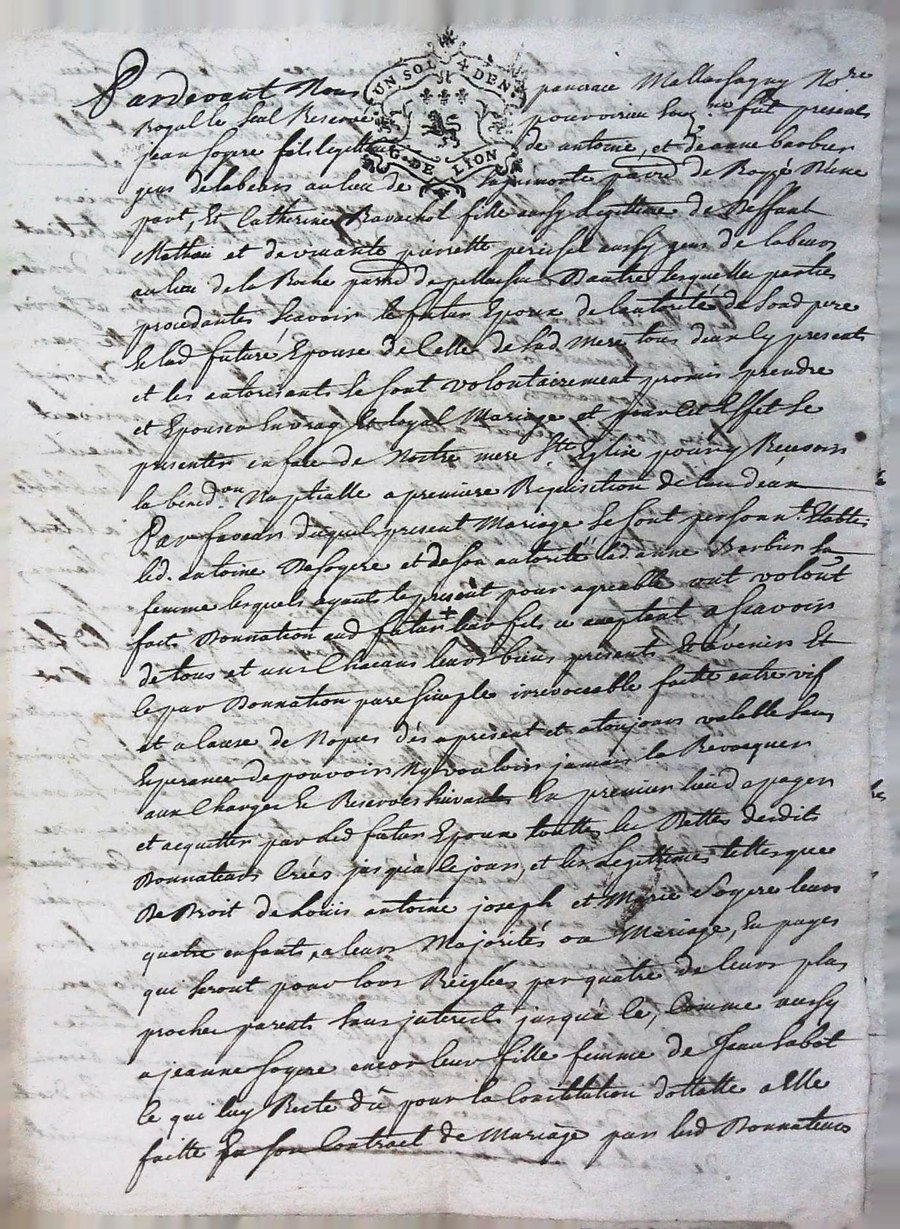 Pardevant Nous pancrace Mallassagny No.re
UN SOL 4 DEN
G. DE LION
Royal le Seul Reservé pouvoirien Souz.né fut present
jean Soyere fils legittime de antoine, et de anne barbier
gens de labeurs au lieu de la primonte parr.d de Rozé d'une
part, Et Catherine Ravachol fille aussy Legittime de deffunt
Mathieu et de vivante pierrette perichel aussy gens de labeur
au lieu de la Roche parr.d de pellussin D'autre lesquelles parties
procedantes Scavoir le futur Epoux de lautorité du Sond pere
Et lad future Epouse de Celle de Sad Mere tous deux Cy presents
et les autorisants Se sont volontairement promis prendre
et Epouser En vray Et loyal Mariage et pour Cet Effet Se
presenter en face de Nostre mere Ste Eglise pour y Recevoir
la bened.on Nuptialle a premiere Requisition de lun deux
Par faveur duquel present Mariage Se Sont personn.t Etablis
led. antoine de Soyere et de son autorité led anne Barbier Sa
femme lesquels ayant le present pour agreable ont volont
fait Donnation aud futur leur fils ce acceptent a Scavoir
de tous et uns Chacuns leurs biens presents Et avenirs Et
ce par Donnation pure Simple irrevocable faitte entre vif
et a Cause de Nopces dès apresent et atoujours valable Sans
Esperance de pouvoir Ny vouloir jamais la Revocquer
aux Charges Et Reserves Suivantes En premier lieu d apayer
et acquitter par led futur Epoux touttes les Dettes desdits
Donnateurs Créés jusqu'à Ce jour, et les Legittimes telles que
De Droit de Loüis antoine joseph et Marie Soyere leurs
quatre enfants, a leurs Majorités ou Mariage, En payes
qui Seront pour lors Reiglées par quatre de leurs plus
proches parents Sans interest jusqu'à Ce, Comme aussy
a jeanne Soyere encor leur fille femme de Jean Sabot
Ce qui luy Reste dû pour la Constitution dottalle a Elle
faitte En Son Contract de Mariage par led Donnateurs